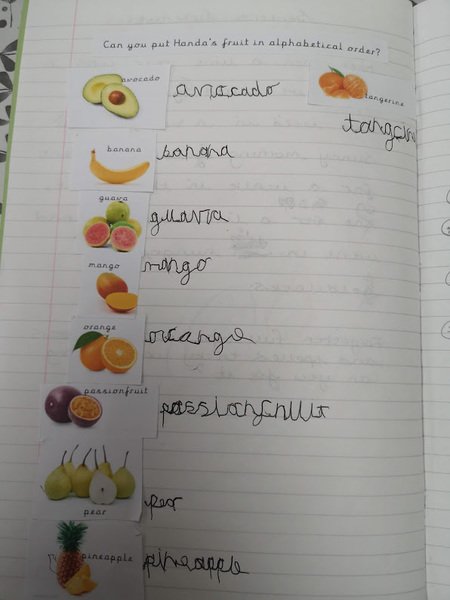 Can you put Handa's fruit in alphabetical order?
avocado
avocado
tangerine
tangerin
banana
banana
guava
guava
mango
mango
orange
orange
passionfruit
passionfruit
pear
pear
pineapple
pineapple